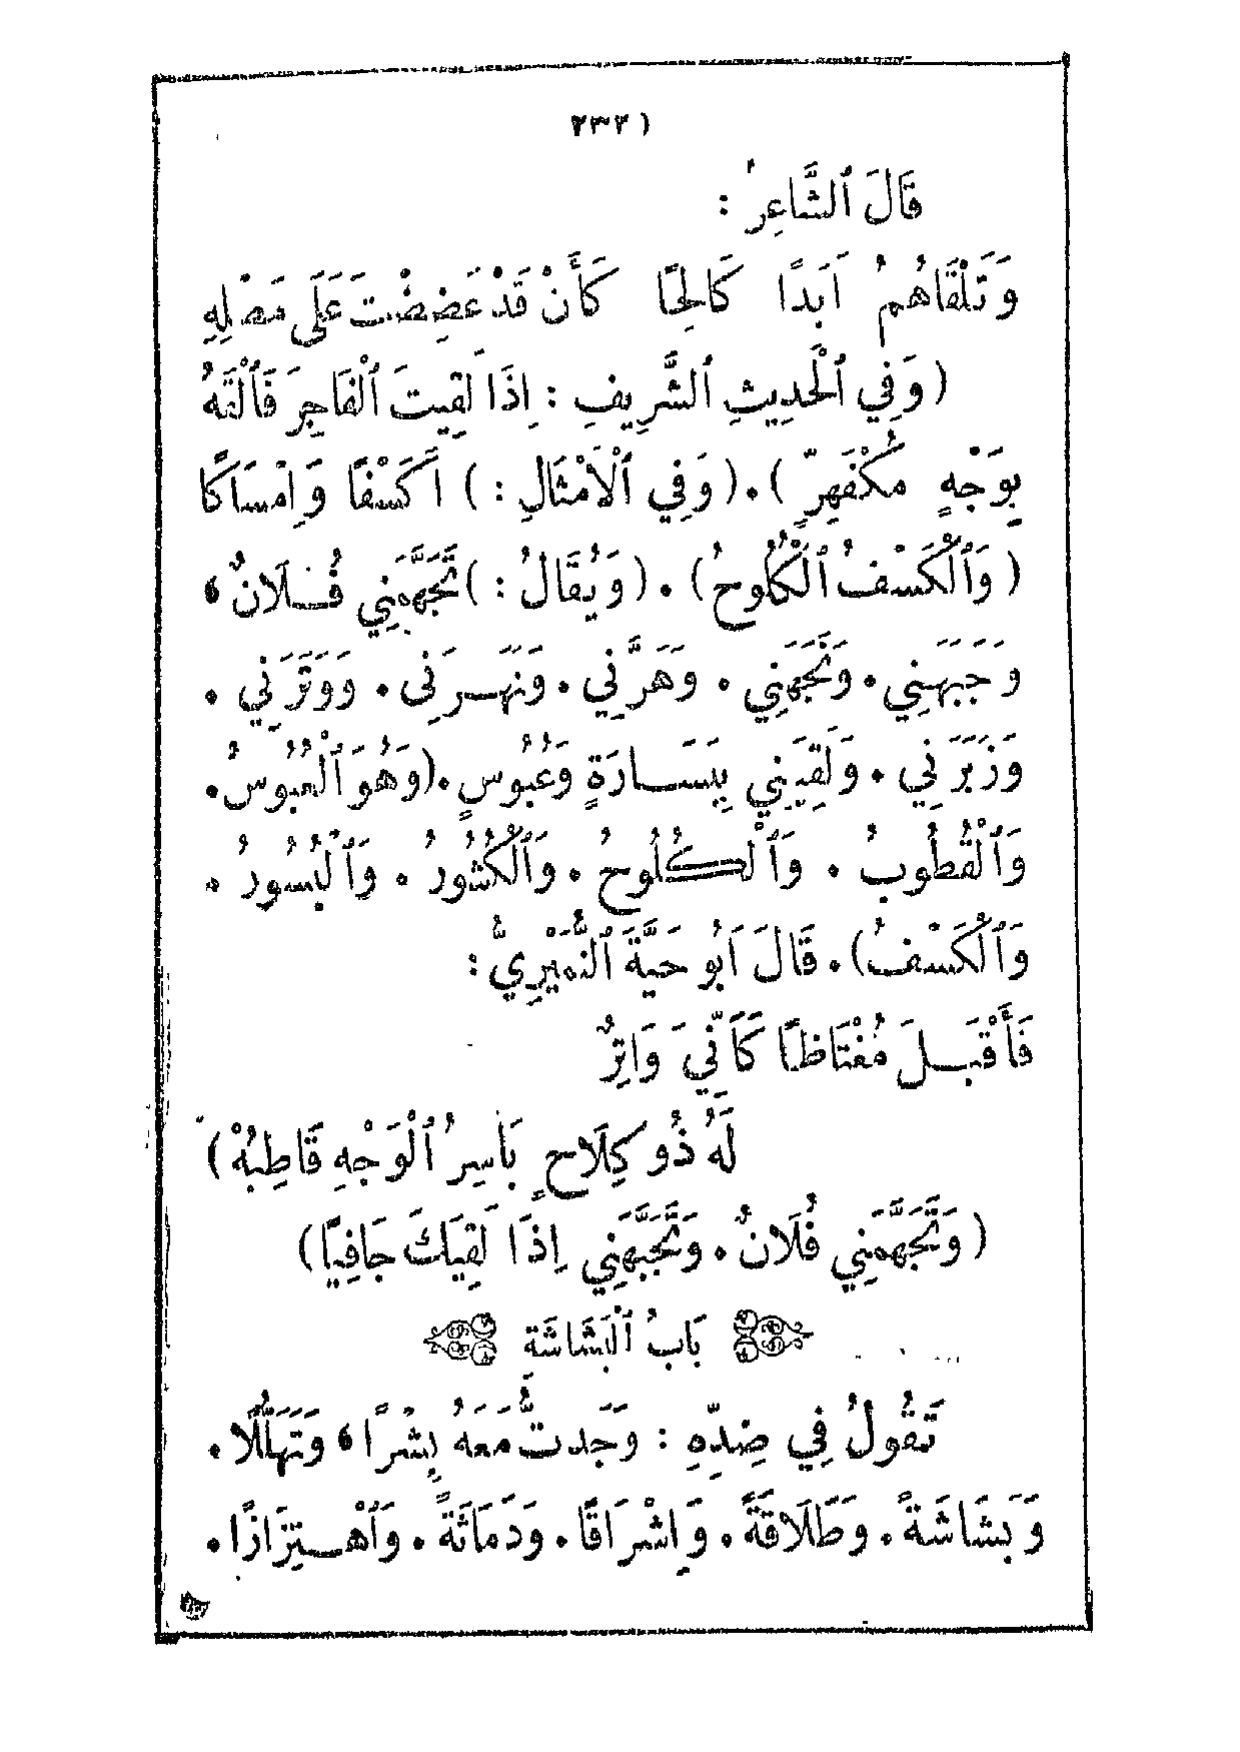 ( ٢٣٢
قَالَ ٱلشَّاعِرُ :
وَتَلْقَاهُمُ اَبَدًا كَالِحًا كَأَنْ قَدْ عَضِضْتَ عَلَى مَصْلِهِ
( وَفِي ٱلْحَدِيثِ ٱلشَّرِيفِ : اِذَا لَقِيتَ ٱلْفَاجِرَ فَٱلْقَهُ
بِوَجْهٍ مُكْفَهِرٍّ ) . ( وَفِي ٱلْاَمْثَالِ : ) اَكَسْفًا وَاِمْسَاكًا
( وَٱلْكَسْفُ ٱلْكُلُوحُ ) . ( وَيُقَالُ : ) تَجَهَّمَنِي فُلَانٌ ،
وَجَبَهَنِي . وَنَجَهَنِي . وَهَرَّنِي . وَنَهَرَنِي . وَوَتَرَنِي .
وَزَبَرَنِي . وَلَقِيَنِي بِبَسَارَةٍ وَعُبُوسٍ . ( وَهُوَ ٱلْعُبُوسُ .
وَٱلْقُطُوبُ . وَٱلْكُلُوحُ . وَٱلْكُشُورُ . وَٱلْبُسُورُ .
وَٱلْكَسْفُ ) . قَالَ اَبُو حَيَّةَ ٱلنُّمَيْرِيُّ :
فَأَقْبَلَ مُغْتَاظًا كَاَنِّيَ وَاتِرٌ
لَهُ ذُو كِلَاحٍ بَاسِرُ ٱلْوَجْهِ قَاطِبُهْ )
( وَتَجَهَّمَنِي فُلَانٌ . وَتَجَبَّهَنِي اِذَا لَقِيَكَ جَافِيًا )
بَابُ ٱلْبَشَاشَةِ
تَقُولُ فِي ضِدِّهِ : وَجَدتُّ مَعَهُ بِشْرًا ، وَتَهَلُّلًا .
وَبَشَاشَةً . وَطَلَاقَةً . وَاِشْرَاقًا . وَدَمَاثَةً . وَٱهْتِزَازًا .